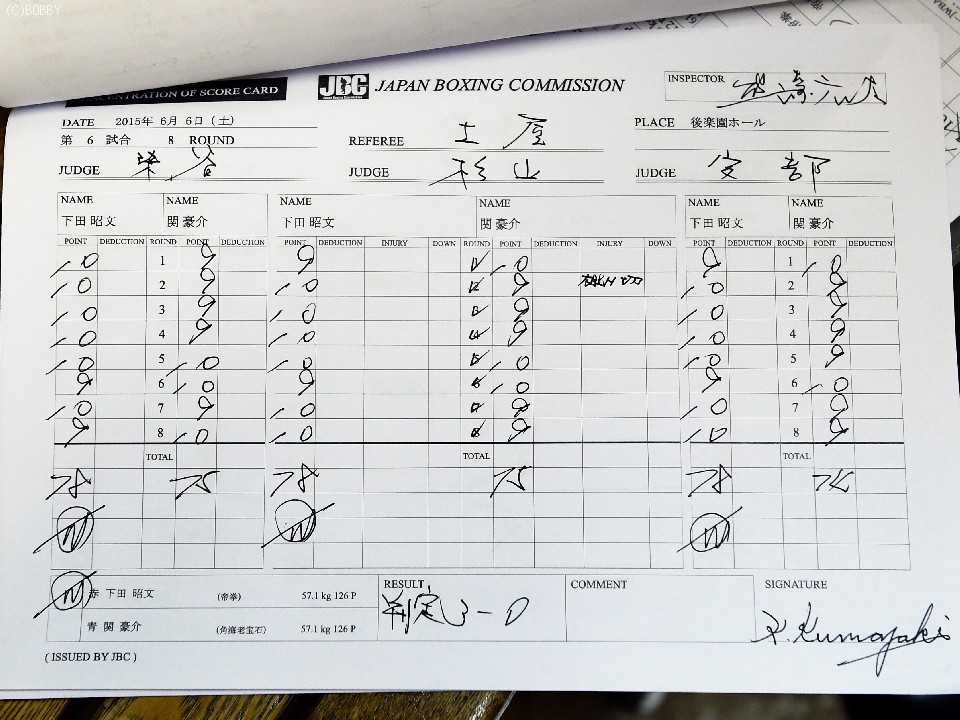 (C)BOBBY
CONCENTRATION OF SCORE CARD
JBC JAPAN BOXING COMMISSION
INSPECTOR
DATE 2015年 6月 6日 (土)
PLACE 後楽園ホール
第 6 試合 8 ROUND
REFEREE 土屋
JUDGE
JUDGE 杉山
JUDGE 安部
NAME NAME NAME NAME NAME NAME
下田 昭文 関 豪介 下田 昭文 関 豪介 下田 昭文 関 豪介
POINT DEDUCTION ROUND POINT DEDUCTION POINT DEDUCTION INJURY DOWN ROUND POINT DEDUCTION INJURY DOWN POINT DEDUCTION ROUND POINT DEDUCTION
10 1 9 9 1 10 9 1 10
10 2 9 10 2 9 10 2 9
10 3 9 10 3 9 10 3 9
10 4 9 10 4 9 10 4 9
10 5 10 10 5 10 10 5 9
9 6 10 9 6 10 9 6 10
10 7 9 10 7 9 10 7 9
9 8 10 10 8 9 10 8 9
TOTAL TOTAL TOTAL
78 75 78 75 78
W W W
W 赤 下田 昭文 (帝拳) 57.1 kg 126 P
青 関 豪介 (角海老宝石) 57.1 kg 126 P
RESULT
判定 3-0
COMMENT
SIGNATURE
K. Kumazaki
( ISSUED BY JBC )